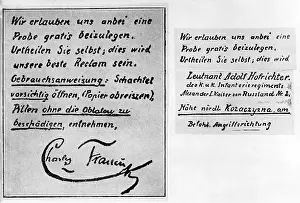 Wir erlauben uns anbei eine
Probe gratis beizulegen.
Urtheilen Sie selbst; dies wird
unsere beste Reclam sein.
Gebrauchsanweisung: Schachtel
vorsichtig öffnen, (Papier abreissen),
Pillen ohne die Oblaten zu
beschädigen, entnehmen,
Charles Francis
Wir erlauben uns anbei eine
Probe gratis beizulegen.
Urtheilen Sie selbst; dies wird
Leutnant Adolf Hofrichter.
des k.u.k. Infanterieregiments
Alexander I. Kaiser von Russland № 2.
nördl. Kozaczyzna am
Angriffsrichtung